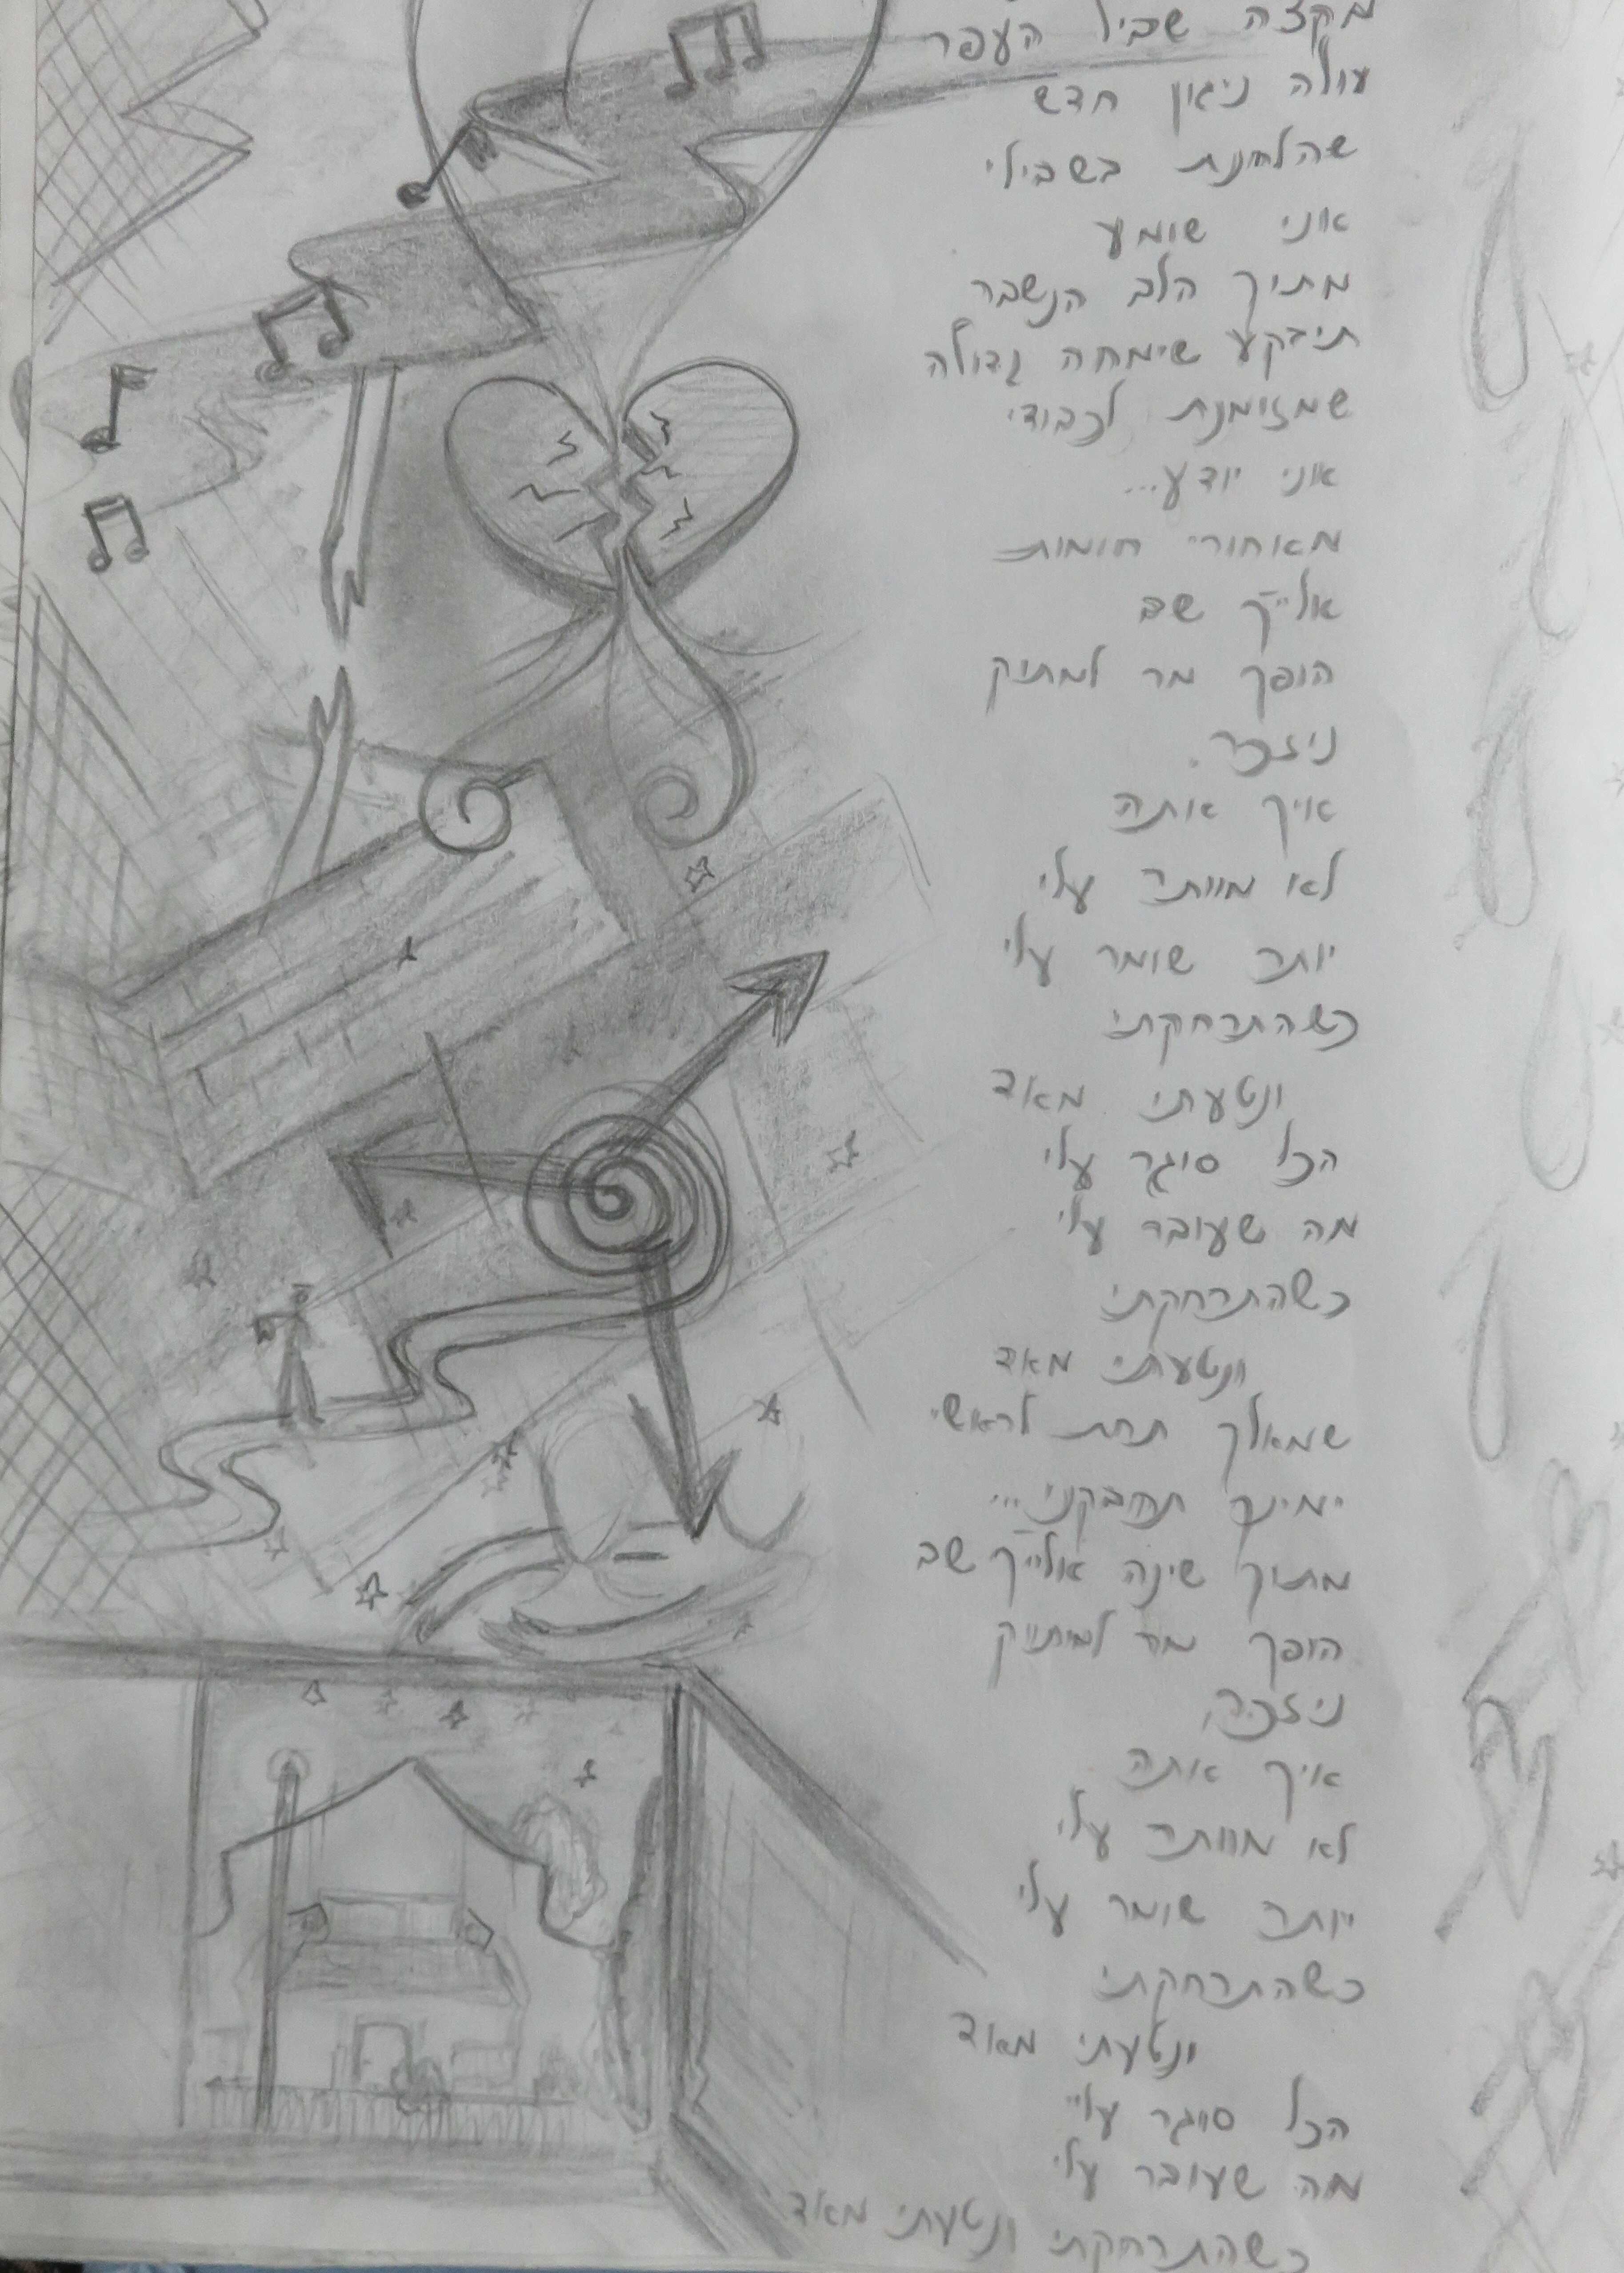 מקצה שביל העפר
עולה ניגון חדש
שהלחנת בשבילי
אני שומע
מתוך הלב הנשבר
תיבקע שימחה גדולה
שמזומנת לכבודי
אני יודע...
מאחורי חומות
אלייך שב
הופך מר למתוק
ניזכר.
איך אתה
לא מוותר עלי
יותר שומר עלי
כשהתרחקתי
וטעתי מאוד
הכל סוגר עלי
מה שעובר עלי
כשהתרחקתי
וטעתי מאד
שמאלך תחת לראשי
ימינך תחבקני...
מתוך שינה אלייך שב
הופך מר למיתוק
ניזכר,
איך אתה
לא מוותר עלי
יותר שומר עלי
כשהתרחקתי
וטעתי מאוד
הכל סוגר עליי
מה שעובר עלי
כשהתרחקתי וטעתי מאד